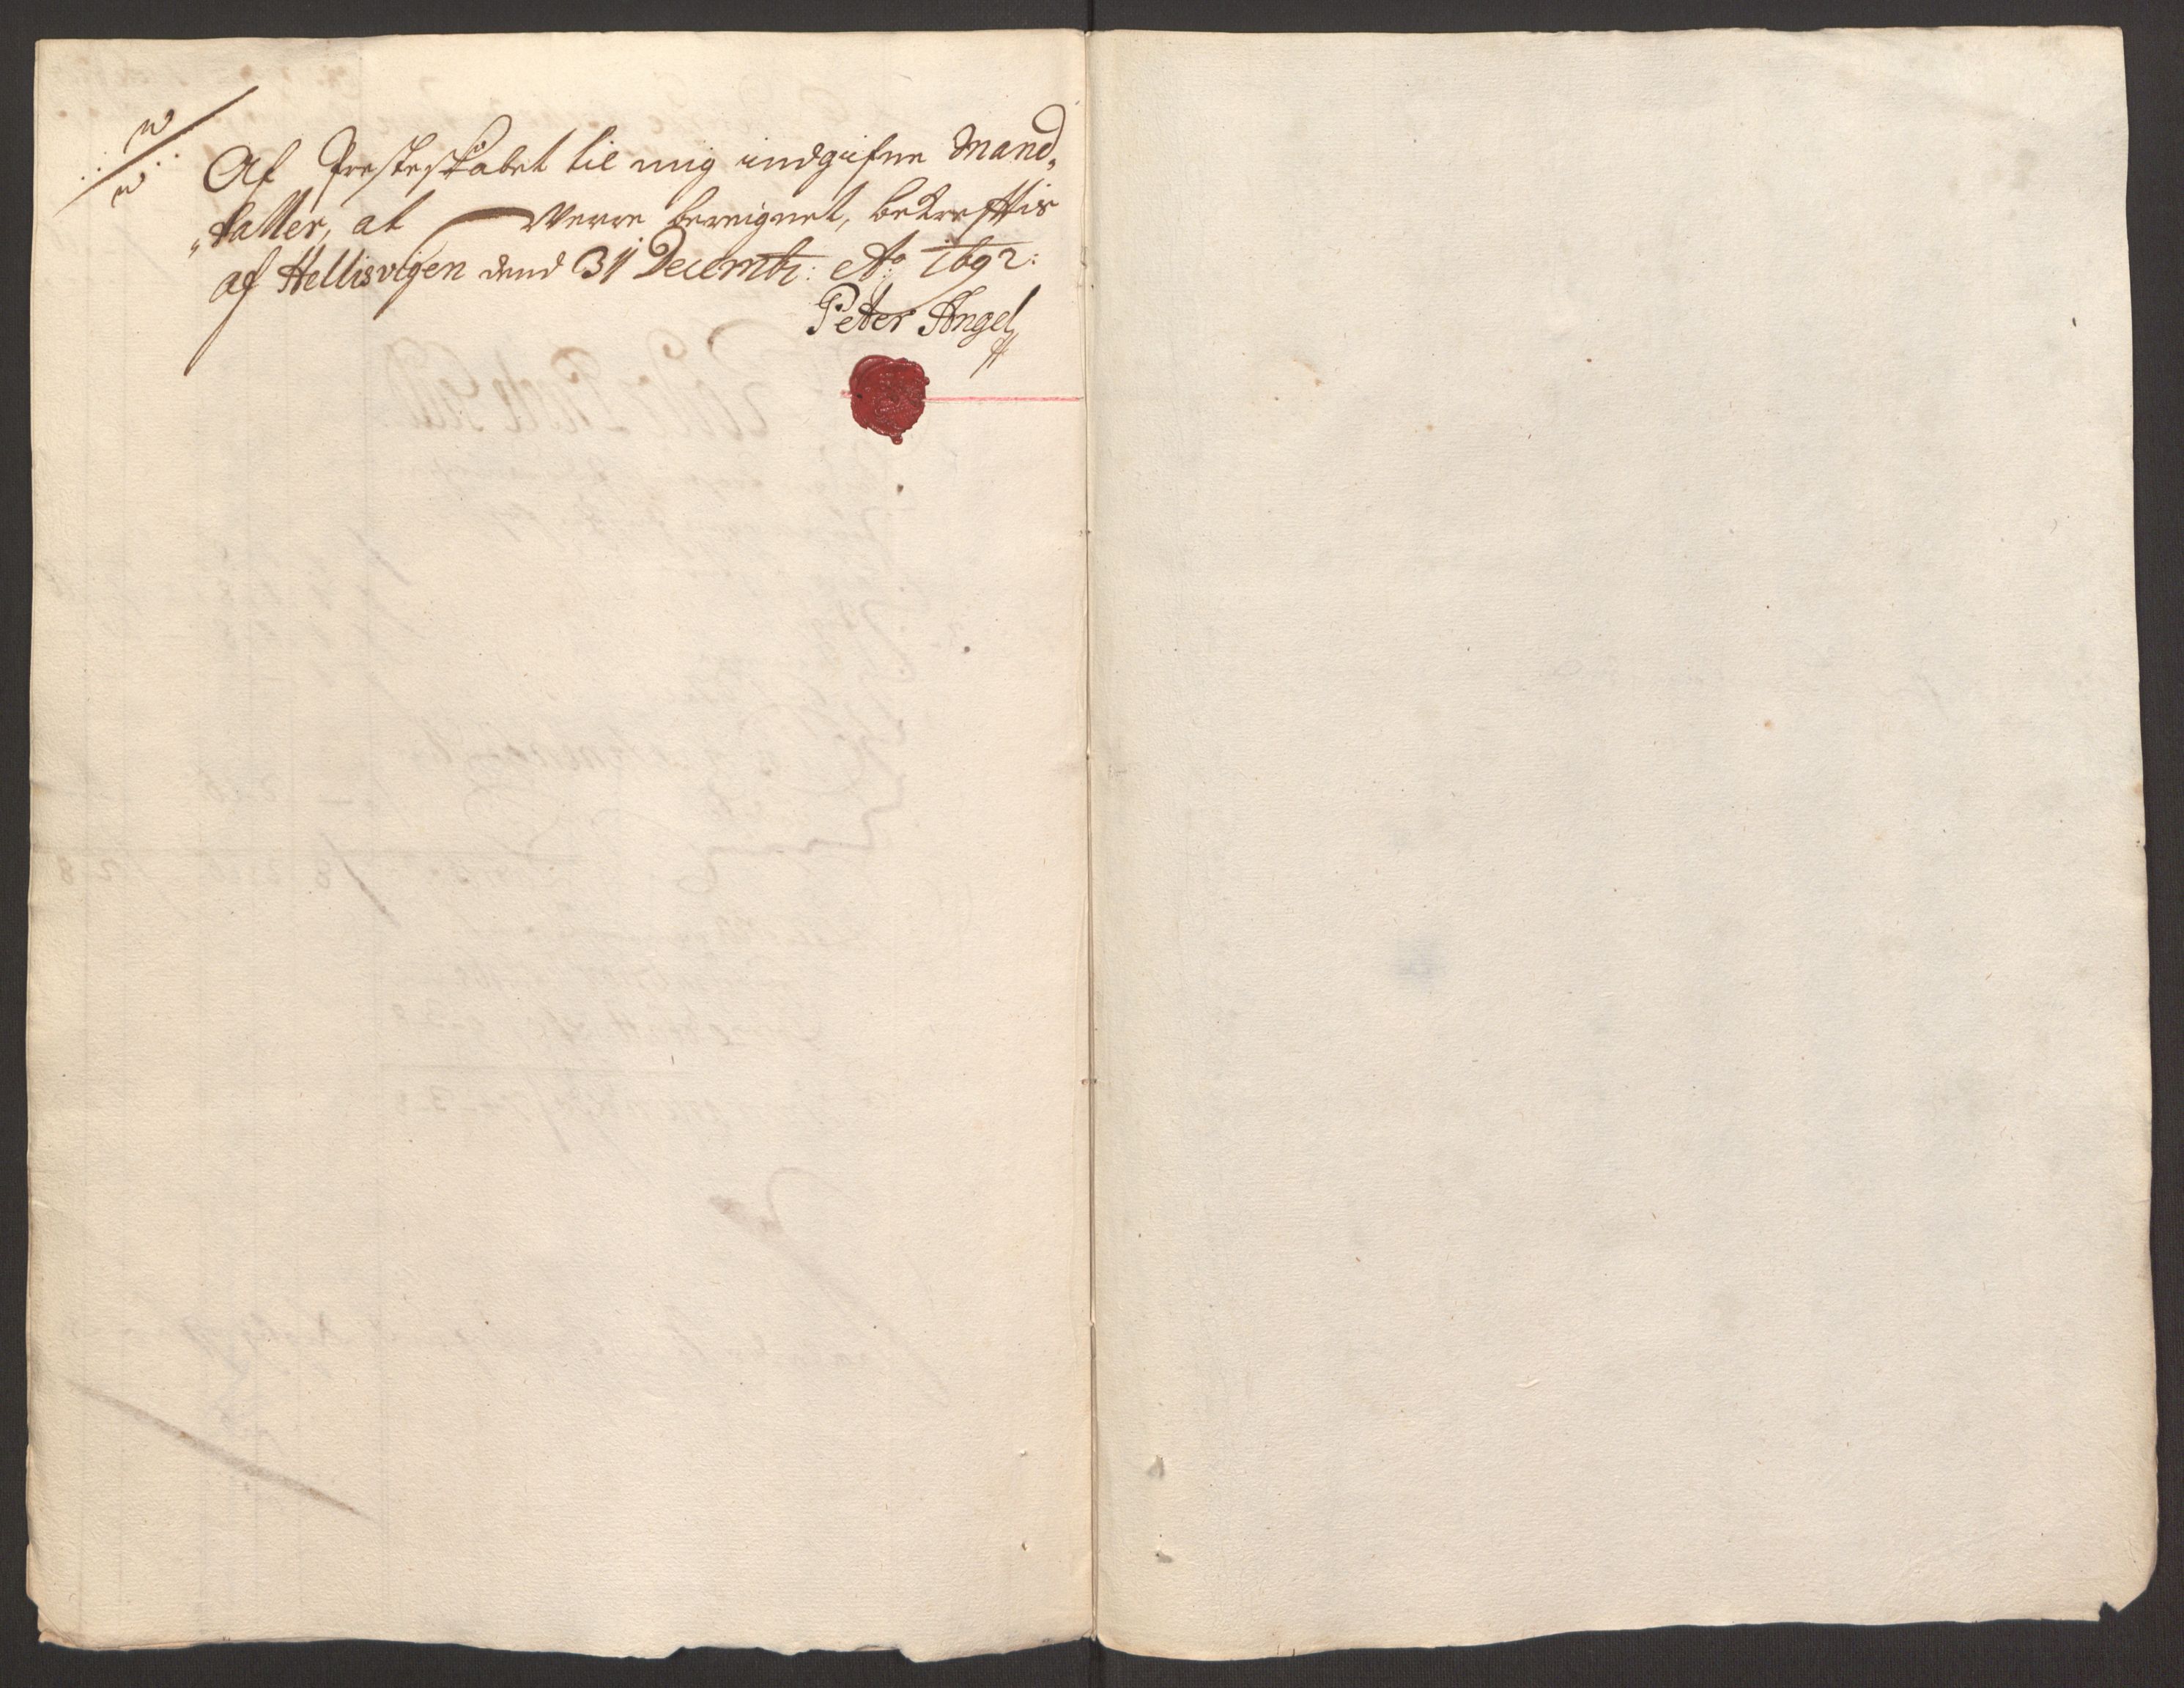 Af Presteskabet til mig indgifne Mand„
„taller, at Verre bereignet, bekreftis
af Hellisvigen dend 31 Decembr: Ao 1692:
Peter Angel